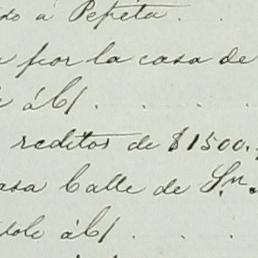 do a Pepita . .
por la casa de
á C/ . . .
reditos de $1500.
asa Calle de Sn.
tole á C/ . . .